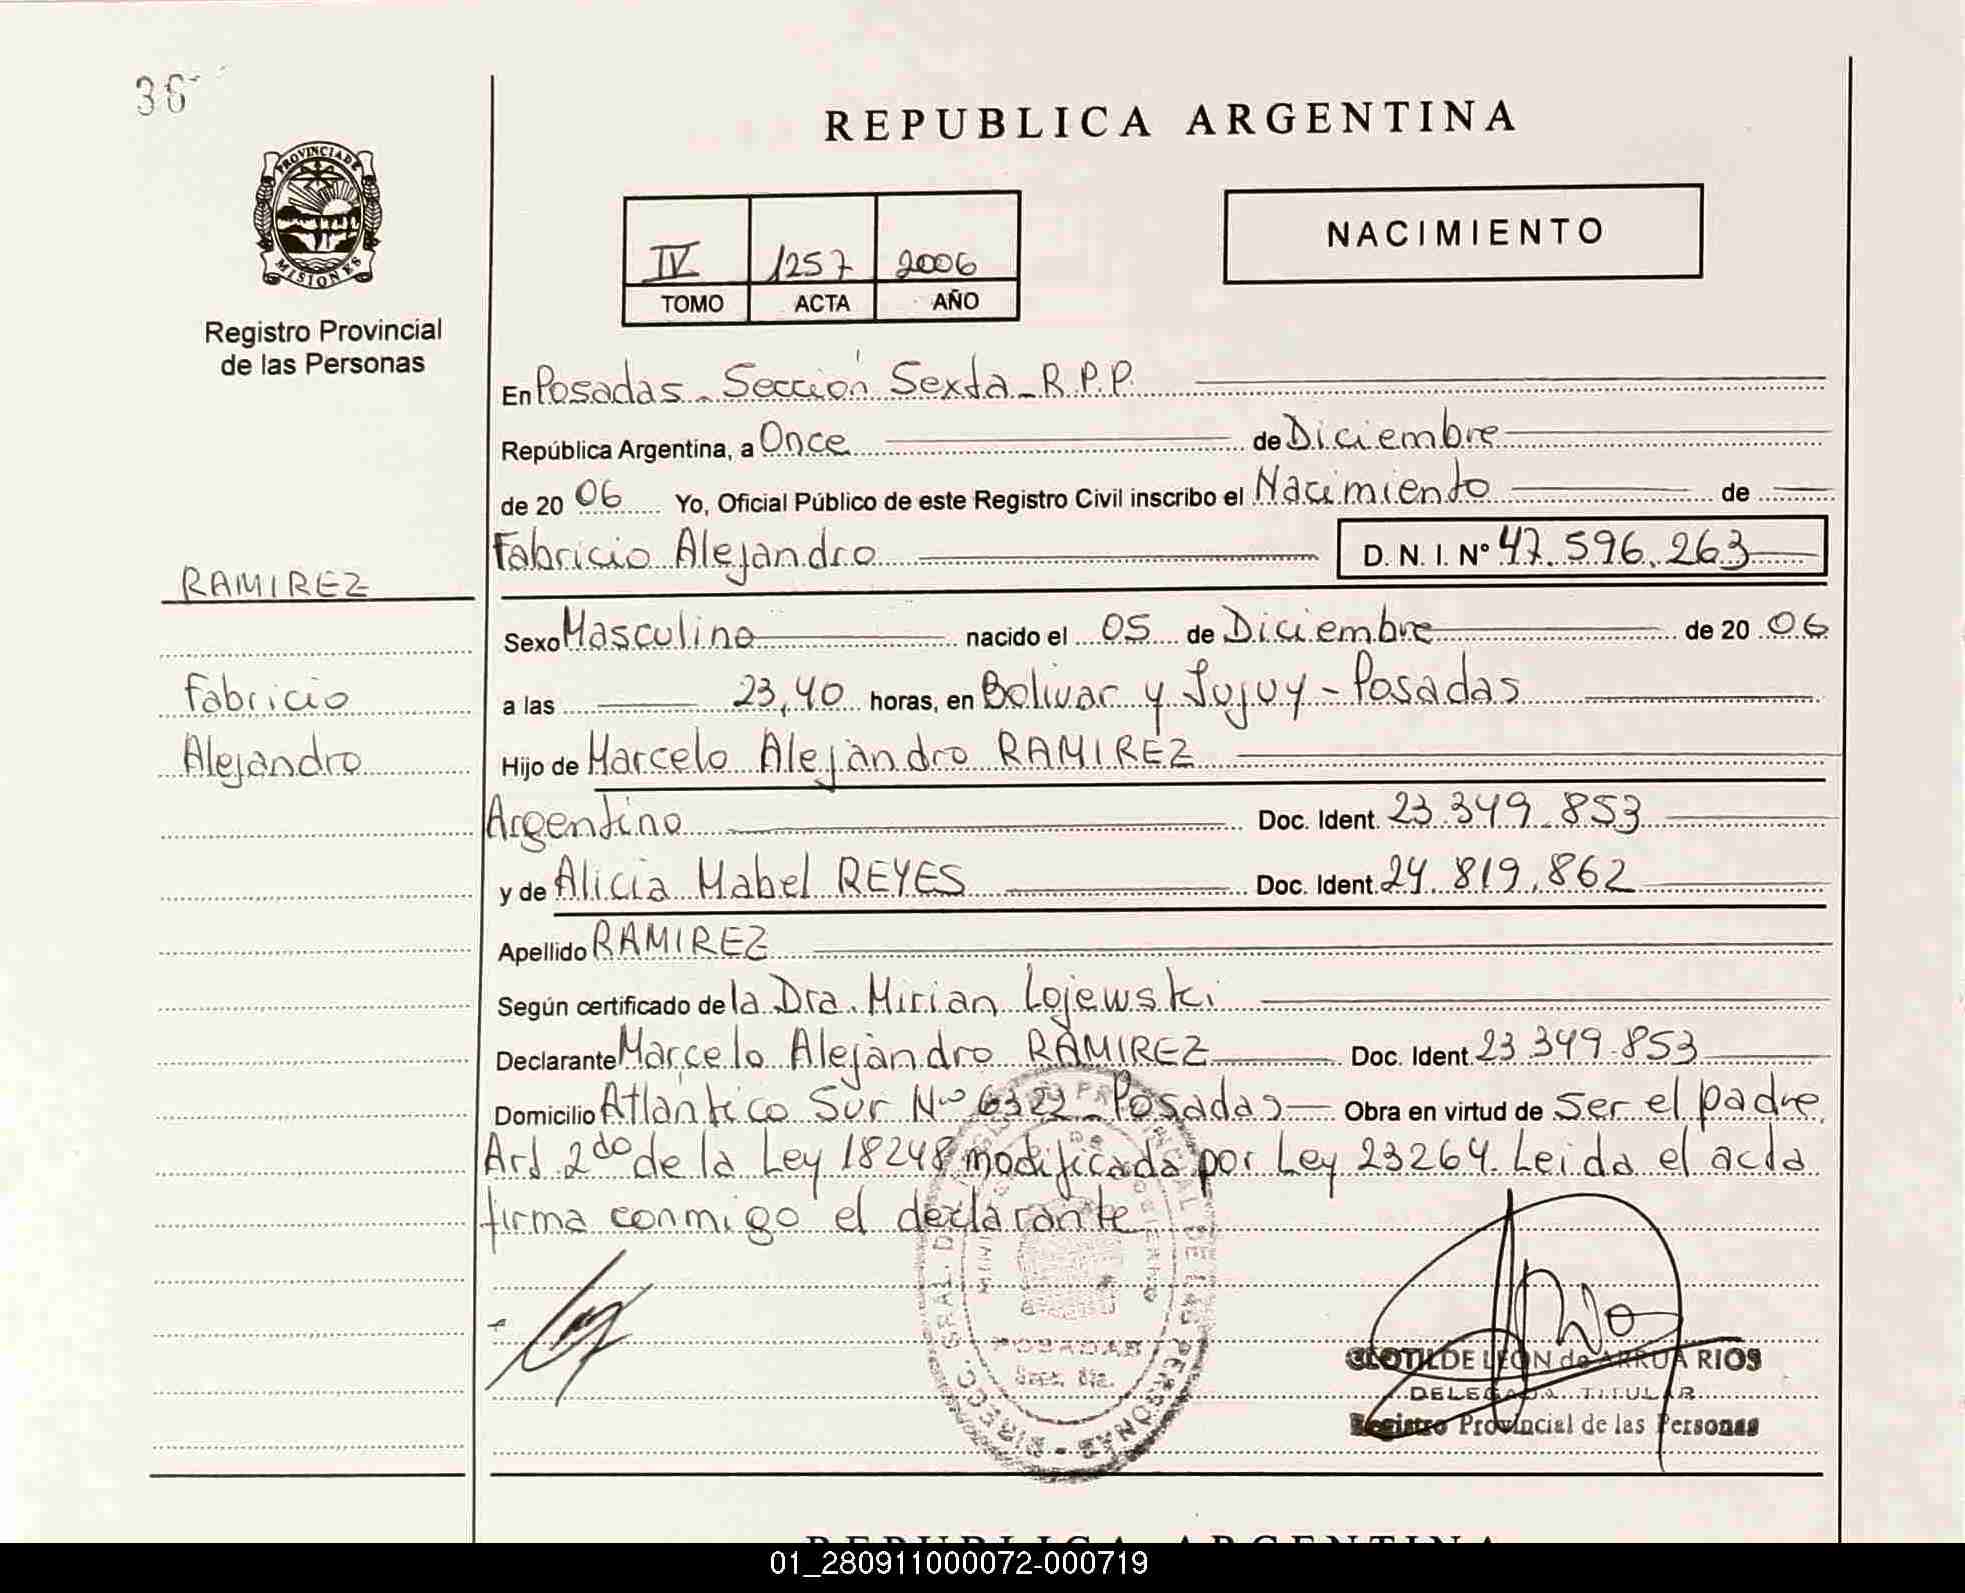 36
PROVINCIA DE
MISIONES
Registro Provincial
de las Personas
RAMIREZ
Fabricio
Alejandro
REPUBLICA ARGENTINA
IV 1257 2006
TOMO ACTA AÑO
NACIMIENTO
En Posadas - Sección Sexta - R.P.P.
República Argentina, a Once de Diciembre
de 20 06 Yo, Oficial Público de este Registro Civil inscribo el Nacimiento de
Fabricio Alejandro D. N. I. N° 47.596.263
Sexo Masculino nacido el 05 de Diciembre de 20 06
a las 23,40 horas, en Bolivar y Jujuy - Posadas
Hijo de Marcelo Alejandro RAMIREZ
Argentino Doc. Ident. 23.349.853
y de Alicia Mabel REYES Doc. Ident. 24.819.862
Apellido RAMIREZ
Según certificado de la Dra. Mirian Lojewski
Declarante Marcelo Alejandro RAMIREZ Doc. Ident. 23.349.853
Domicilio Atlántico Sur N° 6322 - Posadas Obra en virtud de Ser el padre
Art 2do de la Ley 18248 modificada por Ley 23264. Leida el acta
firma conmigo el declarante
POSADAS
CLOTILDE LEON de ARRUA RIOS
DELEGADA TITULAR
Registro Provincial de las Personas
REPUBLICA ARGENTINA
01_280911000072-000719